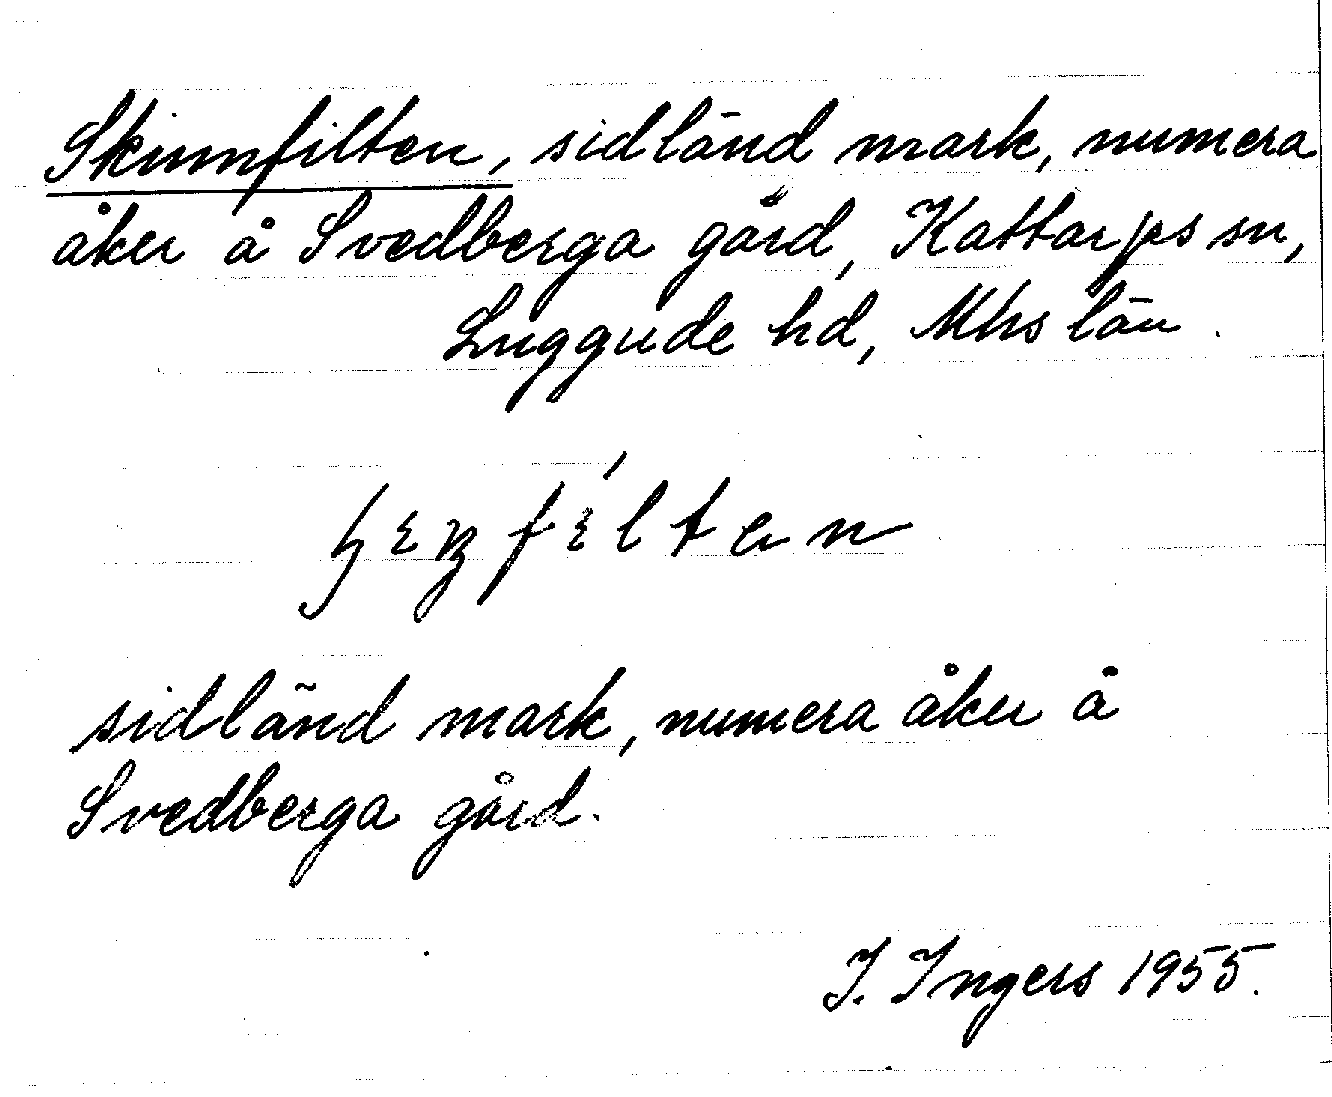 Skinnfilten, sidländ mark, numera
åker å Svedberga gård, Kattarps sn,
Luggude hd, Mhs län.
sidländ mark, numera åker å
Svedberga gård.
I. Ingers 1955.